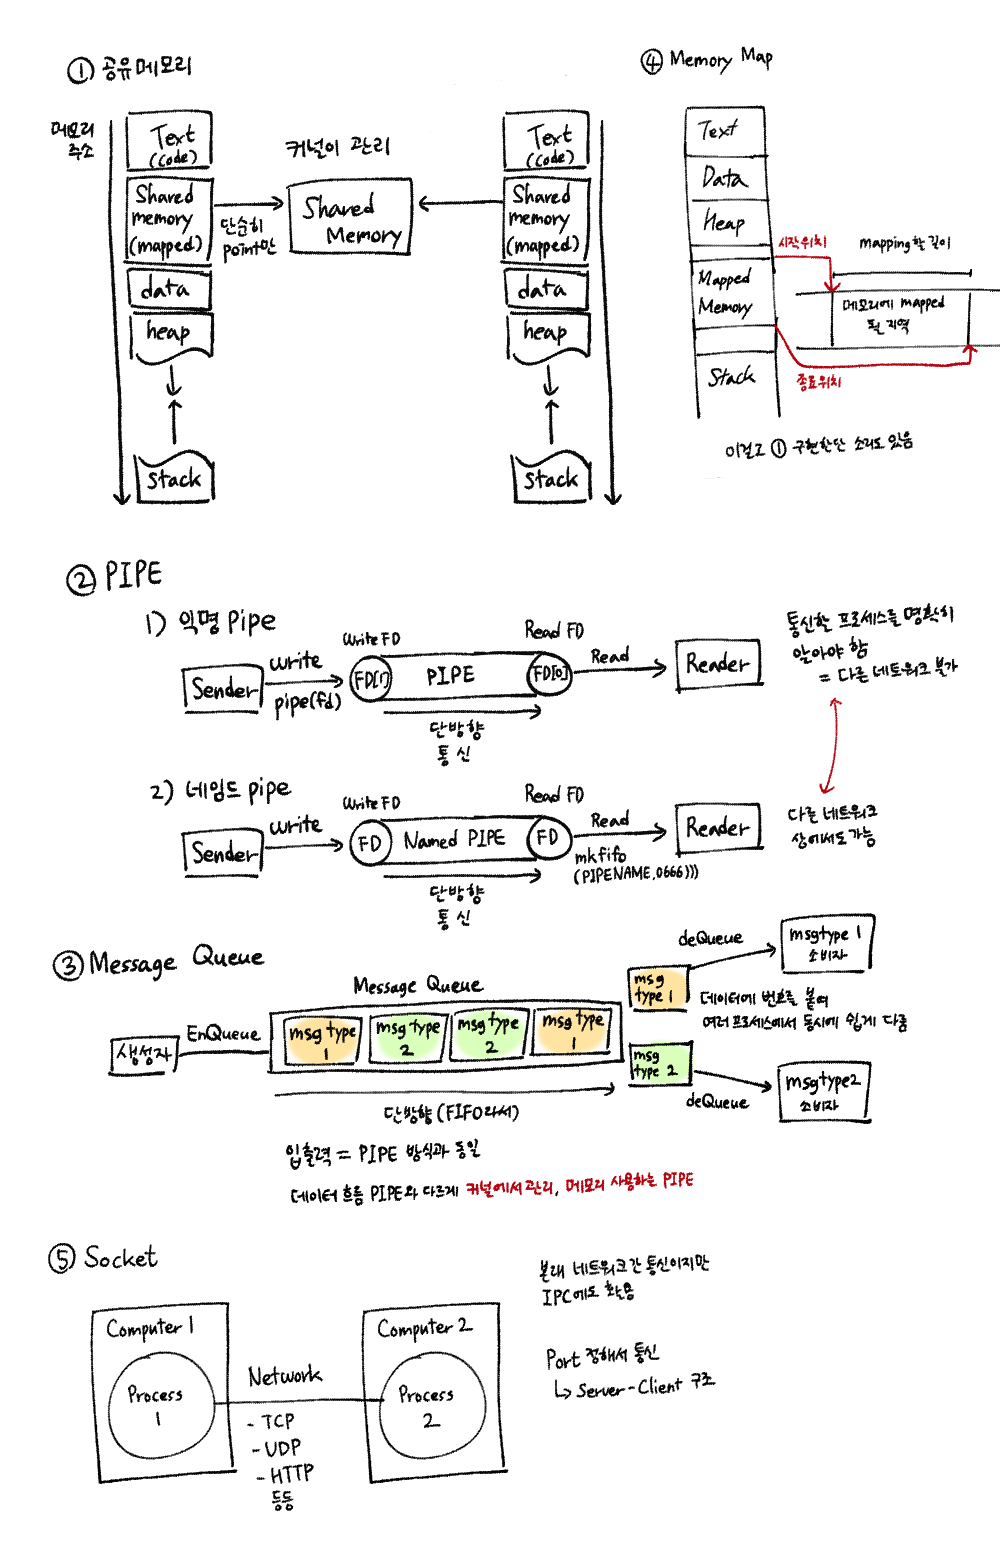 ① 공유메모리
메모리
주소
Text
(code)
Shared
memory
(mapped)
data
heap
stack
커널이 관리
Shared
Memory
단순히
point만
Text
(code)
Shared
memory
(mapped)
data
heap
stack
④ Memory Map
Text
Data
Heap
Mapped
Memory
Stack
시작위치
mapping할 길이
메모리에 mapped
될 지역
종료위치
이걸로 ① 구현한단 소리도 있음
② PIPE
1) 익명 Pipe
Sender
write
pipe(fd)
Write FD
FD[1]
PIPE
Read FD
FD[0]
단방향
통신
Read
Reader
통신할 프로세스를 명확히
알아야 함
= 다른 네트워크 불가
2) 네임드 pipe
Sender
write
Write FD
FD
Named PIPE
Read FD
FD
단방향
통신
Read
mkfifo
(PIPENAME,0666)))
Reader
다른 네트워크
상에서도 가능
③ Message Queue
생성자
EnQueue
Message Queue
msg type
1
msg type
2
msg type
2
msg type
1
단방향 (FIFO라서)
msg
type 1
deQueue
msgtype 1
소비자
데이터에 번호를 붙여
여러 프로세스에서 동시에 쉽게 다룸
msg
type 2
deQueue
msgtype2
소비자
입출력 = PIPE 방식과 동일
데이터 흐름 PIPE와 다르게 커널에서 관리, 메모리 사용하는 PIPE
⑤ Socket
Computer 1
Process
1
Network
- TCP
- UDP
- HTTP
등등
Computer 2
Process
2
본래 네트워크간 통신이지만
IPC에도 활용
Port 정해서 통신
↳ Server-Client 구조